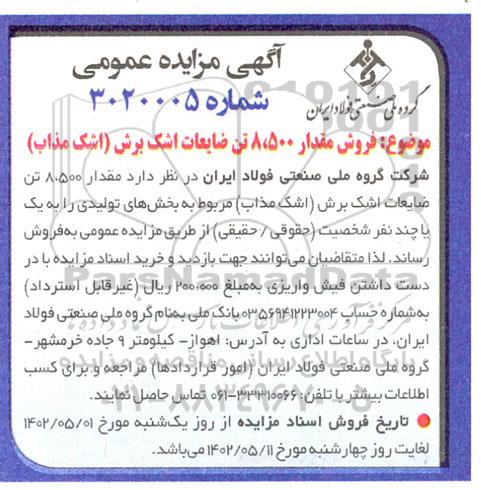 آگهی مزایده عمومی
شماره ۳۰۲۰۰۰۵
گروه ملی صنعتی فولاد ایران
موضوع: فروش مقدار ۸،۵۰۰ تن ضایعات اشک برش (اشک مذاب)
شرکت گروه ملی صنعتی فولاد ایران در نظر دارد مقدار ۸،۵۰۰ تن
ضایعات اشک برش (اشک مذاب) مربوط به بخش‌های تولیدی را به یک
یا چند نفر شخصیت (حقوقی / حقیقی) از طریق مزایده عمومی به‌فروش
رساند. لذا متقاضیان می‌توانند جهت بازدید و خرید اسناد مزایده با در
دست داشتن فیش واریزی به‌مبلغ ۲۰۰،۰۰۰ ریال (غیرقابل استرداد)
به‌شماره حساب ۰۳۵۶۹۴۱۲۲۳۰۰۴ بانک ملی به‌نام گروه ملی صنعتی فولاد
ایران، در ساعات اداری به آدرس: اهواز- کیلومتر ۹ جاده خرمشهر-
گروه ملی صنعتی فولاد ایران (امور قراردادها) مراجعه و برای کسب
اطلاعات بیشتر با تلفن: ۳۲۳۱۰۰۶۶-۰۶۱ تماس حاصل نمایند.
تاریخ فروش اسناد مزایده از روز یک‌شنبه مورخ ۱۴۰۲/۰۵/۰۱
لغایت روز چهارشنبه مورخ ۱۴۰۲/۰۵/۱۱ می‌باشد.
ParsNamadData
۰۲۱-۸۸۳۴۹۶۷۰-۵